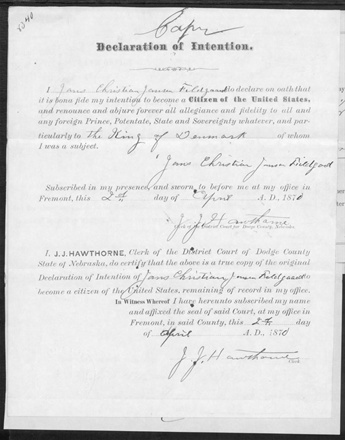 Copy
Declaration of Intention.
I Jans Christian Jensen Fieldgaard do declare on oath that
it is bona fide my intention to become a Citizen of the United States,
and renounce and abjure forever all allegiance and fidelity to all and
any foreign Prince, Potentate, State and Sovereignty whatever, and par-
ticularly to The King of Denmark of whom
I was a subject.
Jans Christian Jensen Fieldgaard
Subscribed in my presence, and sworn to before me at my office in
Fremont, this 2nd day of April A. D. 1870
J. J. Hawthorne
Clerk of the District Court for Dodge County, Nebraska
I, J. J. HAWTHORNE, Clerk of the District Court of Dodge County
State of Nebraska, do certify that the above is a true copy of the original
Declaration of Intention of Jans Christian Jensen Fieldgaard to
become a citizen of the United States, remaining of record in my office.
In Witness Whereof I have hereunto subscribed my name
and affixed the seal of said Court, at my office in
Fremont, in said County, this 2nd day
of April A. D., 1870
J. J. Hawthorne
Clerk